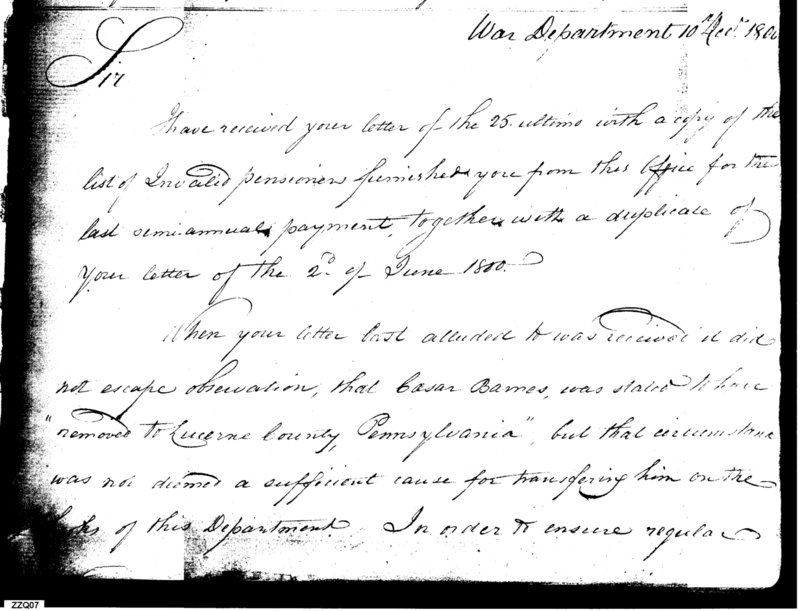 War Department 10th Decr. 1800
Sir
I have received your letter of the 25. ultimo with a copy of the
list of Invalid pensioners furnished you from this Office for the
last semi-annual payment, together with a duplicate of
your letter of the 2d. of June 1800.
When your letter last alluded to was received it did
not escape observation, that Cæsar Barnes, was stated to have
"removed to Lucerne County, Pennsylvania", but that circumstance
was not deemed a sufficient cause for transfering him on the
books of this Department. In order to ensure regular
ZZQ07